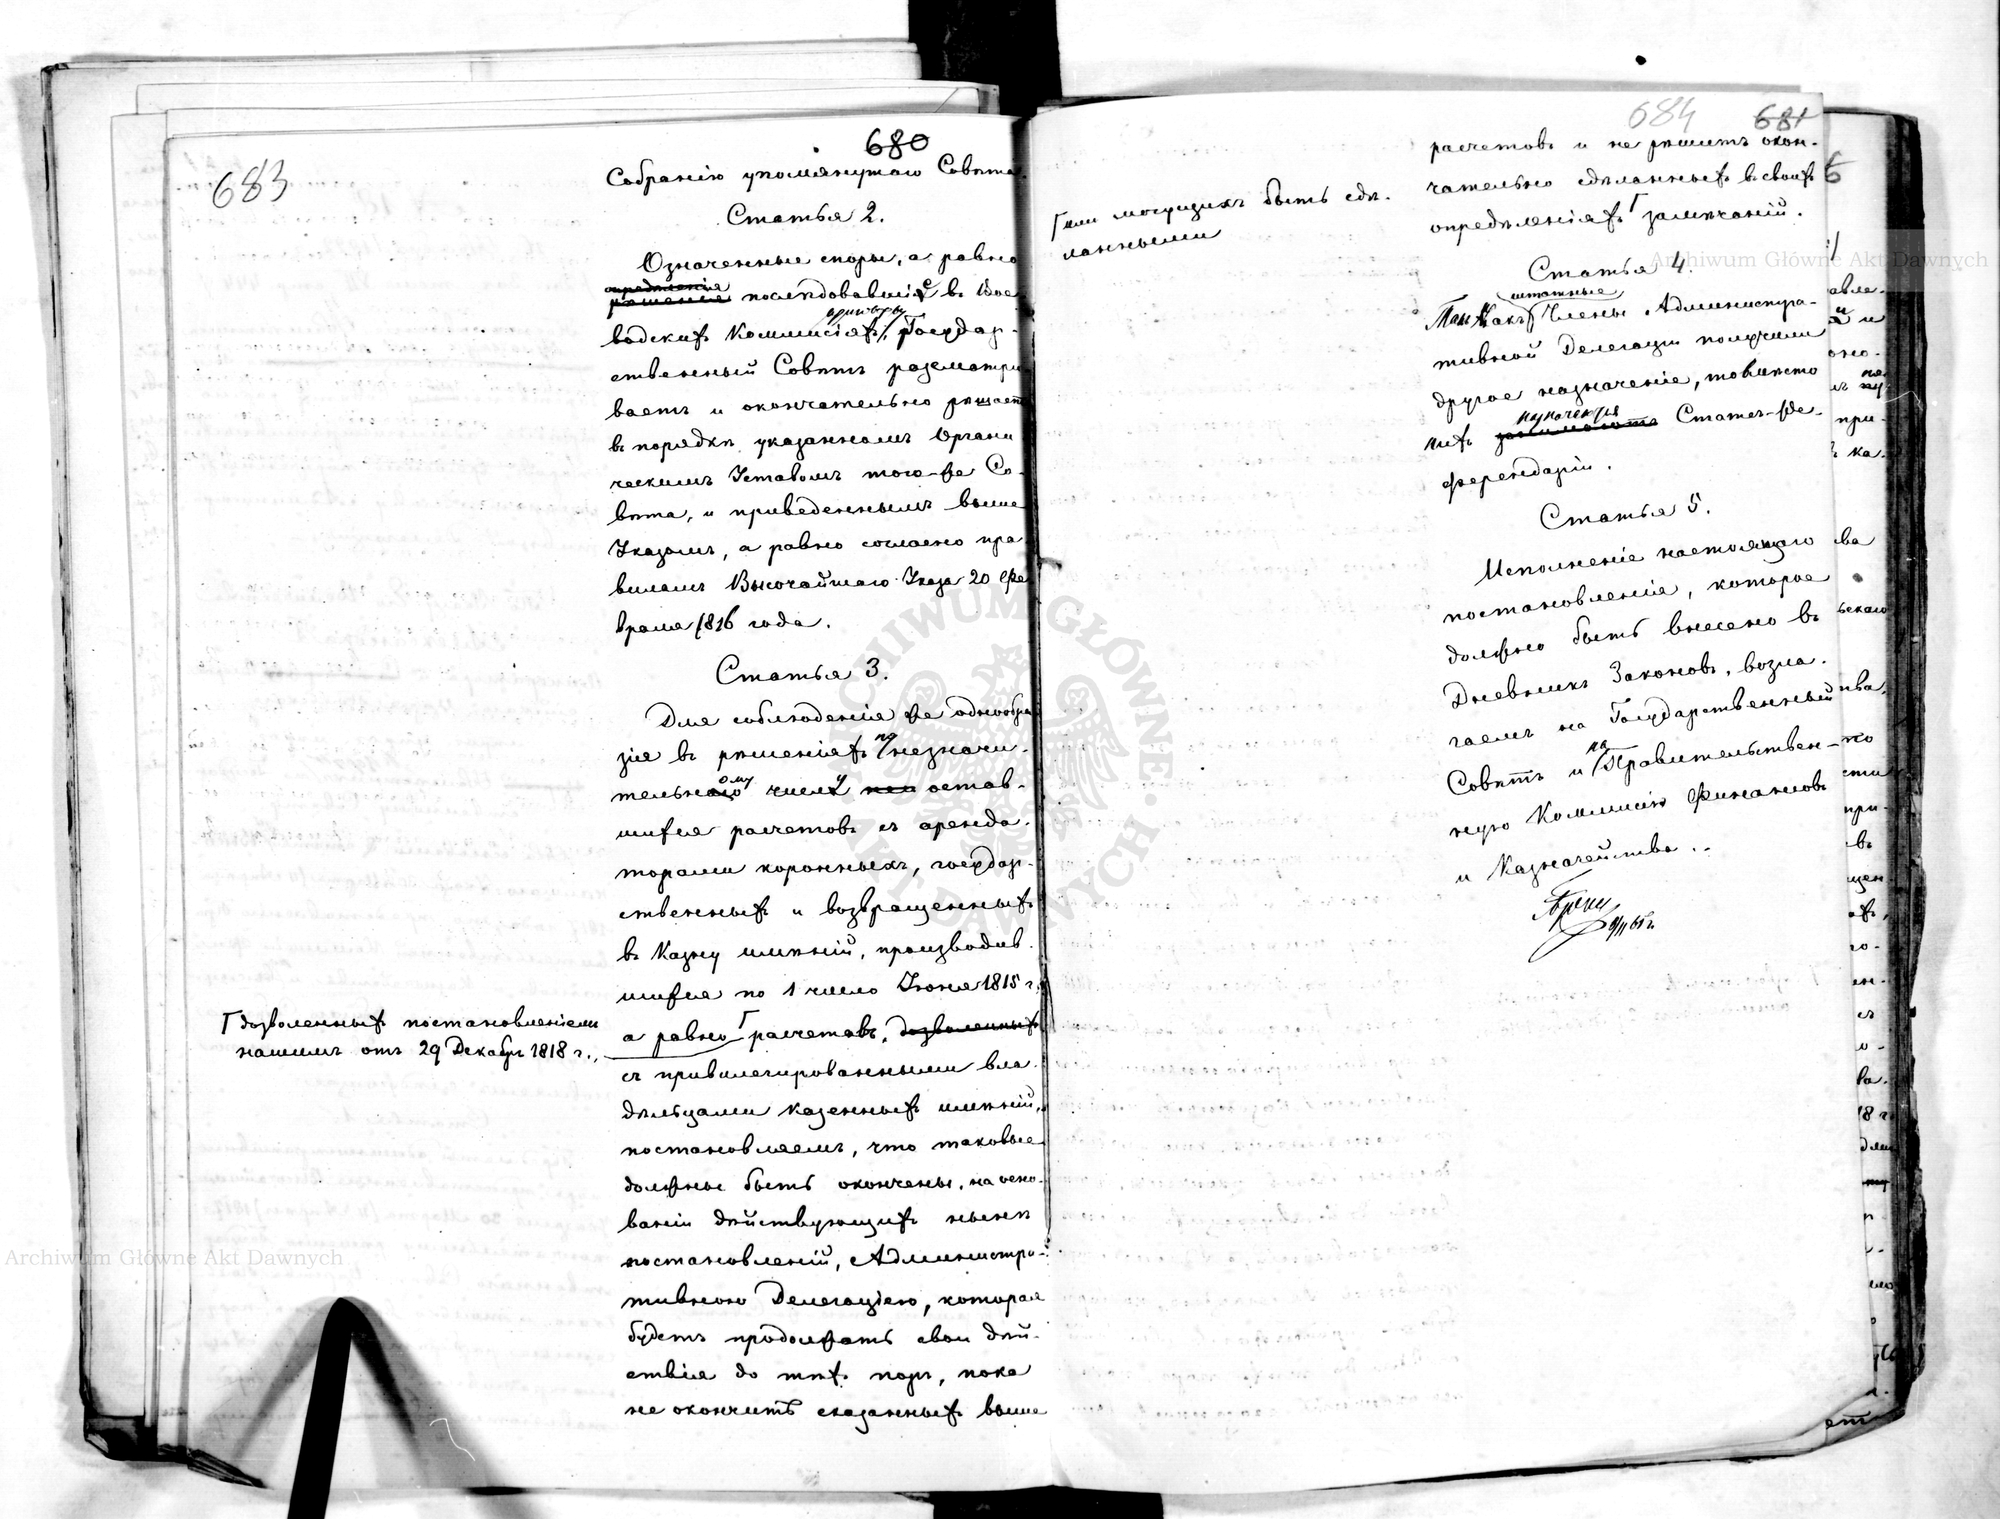 683
680
Собранію упомянутаго Совѣта.
Статья 2.
Означенные споры, а равно
опредѣленія
рѣшенія послѣдовавшіе въ Вое
водскихъ Коммисіяхъ, Государ-
ственный Совѣтъ разсматри
ваетъ и окончательно рѣшаетъ
въ порядкѣ указанномъ Органи
ческимъ Уставомъ того-же Со-
вѣта, и приведеннымъ выше
Указомъ, а равно согласно пра
виламъ Высочайшаго Указа 20 Фе
враля 1816 года.
Статья 3.
Для соблюденія же однообра
зія въ рѣшеніяхъ по незначи-
тельному числу остав-
шихся расчетовъ съ аренда-
торами коронныхъ, государ-
ственныхъ и возвращенныхъ
въ Казну имѣній, производив-
шихся по 1 число Іюня 1815 г.
а равно Г расчетовъ, дозволенныхъ
Г дозволенныхъ постановленіемъ
нашимъ отъ 29 Декабря 1818 г.,
съ привилегированными вла-
дѣльцами казенныхъ имѣній,
постановляемъ, что таковые
должны быть окончены, на осно-
ваніи дѣйствующихъ нынѣ
постановленій, Администра-
тивною Делегаціею, которая
будетъ продолжать свои дѣй-
ствія до тѣхъ поръ, пока
не окончитъ сказанныхъ выше
684 681
расчетовъ и не рѣшитъ окон-
чательно сдѣланныхъ въ своихъ
опредѣленіяхъ Г замѣчаній.
Г или могущихъ быть сдѣ-
ланными
Статья 4.
штатные
Такъ какъ Члены Администра-
тивной Делегаціи получили
другое назначеніе, то вмѣсто
назначаются
нихъ Статсъ-Ре-
ферендаріи.
Статья 5.
Исполненіе настоящаго
постановленія, которое
должно быть внесено въ
Дневникъ Законовъ, возла-
гаемъ на Государственный
Совѣтъ и на Правительствен-
ную Коммисію Финансовъ
и Казначейства.
Archiwum Główne Akt Dawnych
Archiwum Główne Akt Dawnych
ARCHIWUM GŁÓWNE AKT DAWNYCH